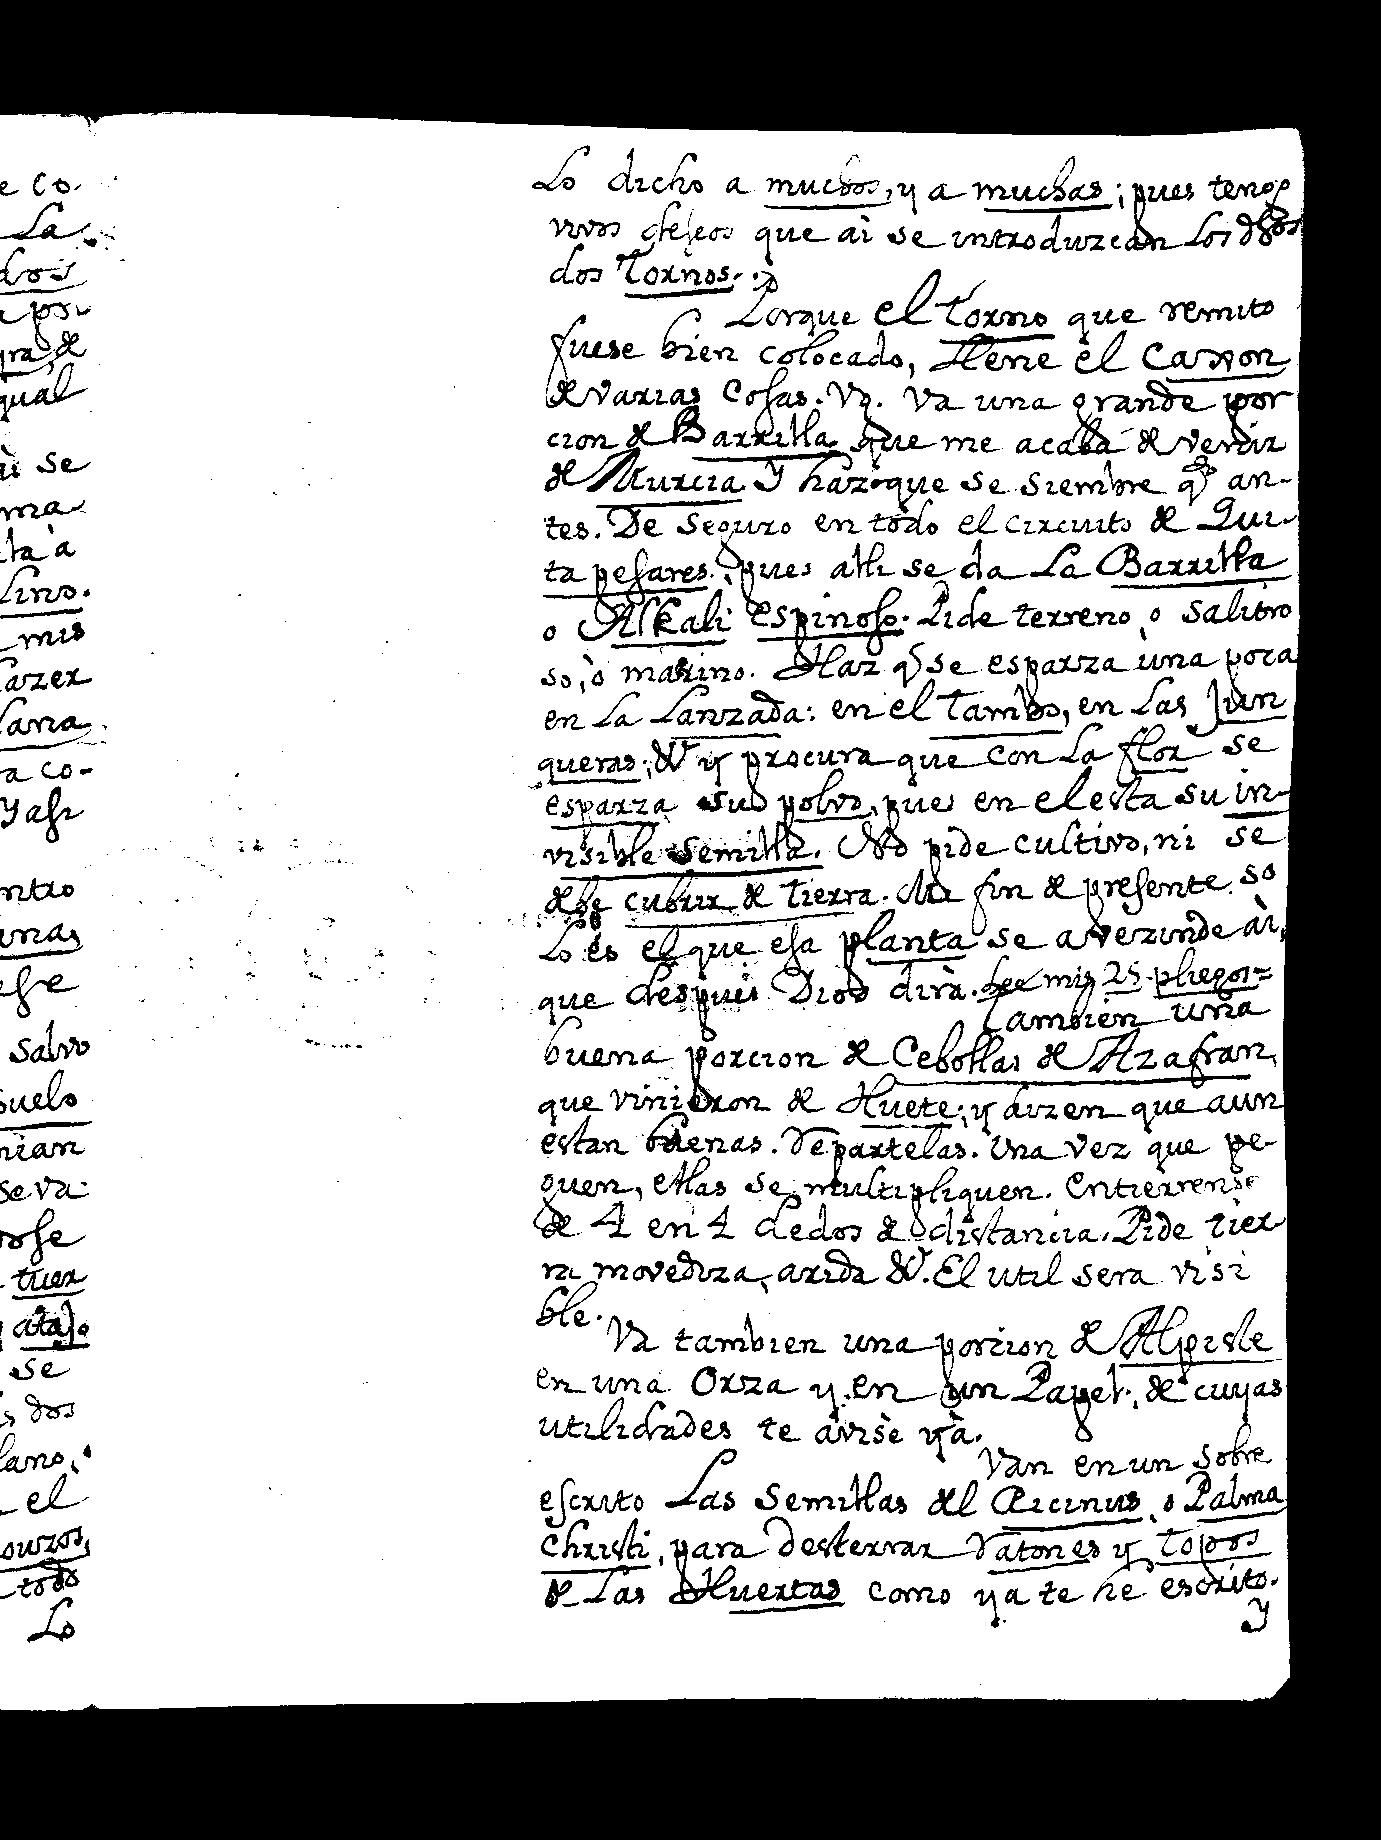 e co-
La
dos
a po-
gra, de
qual
ài se
ma
lta à
Lino.
mis
hazer
Lana
ra co-
Y asi
ntro
unas
ese
salvo
suelo
nian
se va
ose
tier
atajo
se
s dos
lano,
el
ouros,
todo
Lo
Lo dicho a muchos, y a muchas; pues tengo
vivos deseos que ai se introduzcan los dhos
dos Tornos.
Porque el Torno que remito
fuese bien colocado, llene el Caxon
de varias cosas. Vg. Va una grande por
cion de Barrilla que me acaba de venir
de Murcia y haz que se siembre qto an-
tes. De seguro en todo el circuito de Qui-
ta pesares, pues alli se da la Barrilla
o Alkali espinoso. Pide terreno o salitro
so, ò marino. Haz q se esparza ùna poca
en la Lanzada: en el Tambo, en las Jun
queras; &c y procura que con la flor se
esparza su polvo, pues en el esta su in-
visible semilla. No pide cultivo, ni se
debe cubrir de tierra. Mi fin de presente so
lo es el que esa planta se avezinde ài,
que despues Dios dirà. mis 25 pliegos=
Tambien una
buena porcion de Cebollas de Azafran,
que vinieron de Huete; y dizen que aun
estan buenas. Repartelas. Una vez que pe-
guen, ellas se multipliquen. Entierrense
de 4 en 4 dedos de distancia. Pide tier-
ra movediza, arida &c. El util sera visi
ble.
Va tambien una porcion de Alpiste
en una Orza y en un Papel; de cuyas
utilidades te àvisè yà.
Van en un sobre
escrito Las semillas del Ricinus, o Palma
Christi, para desterrar Ratones y Topos
de las Huertas como ya te hè escrito.
Y